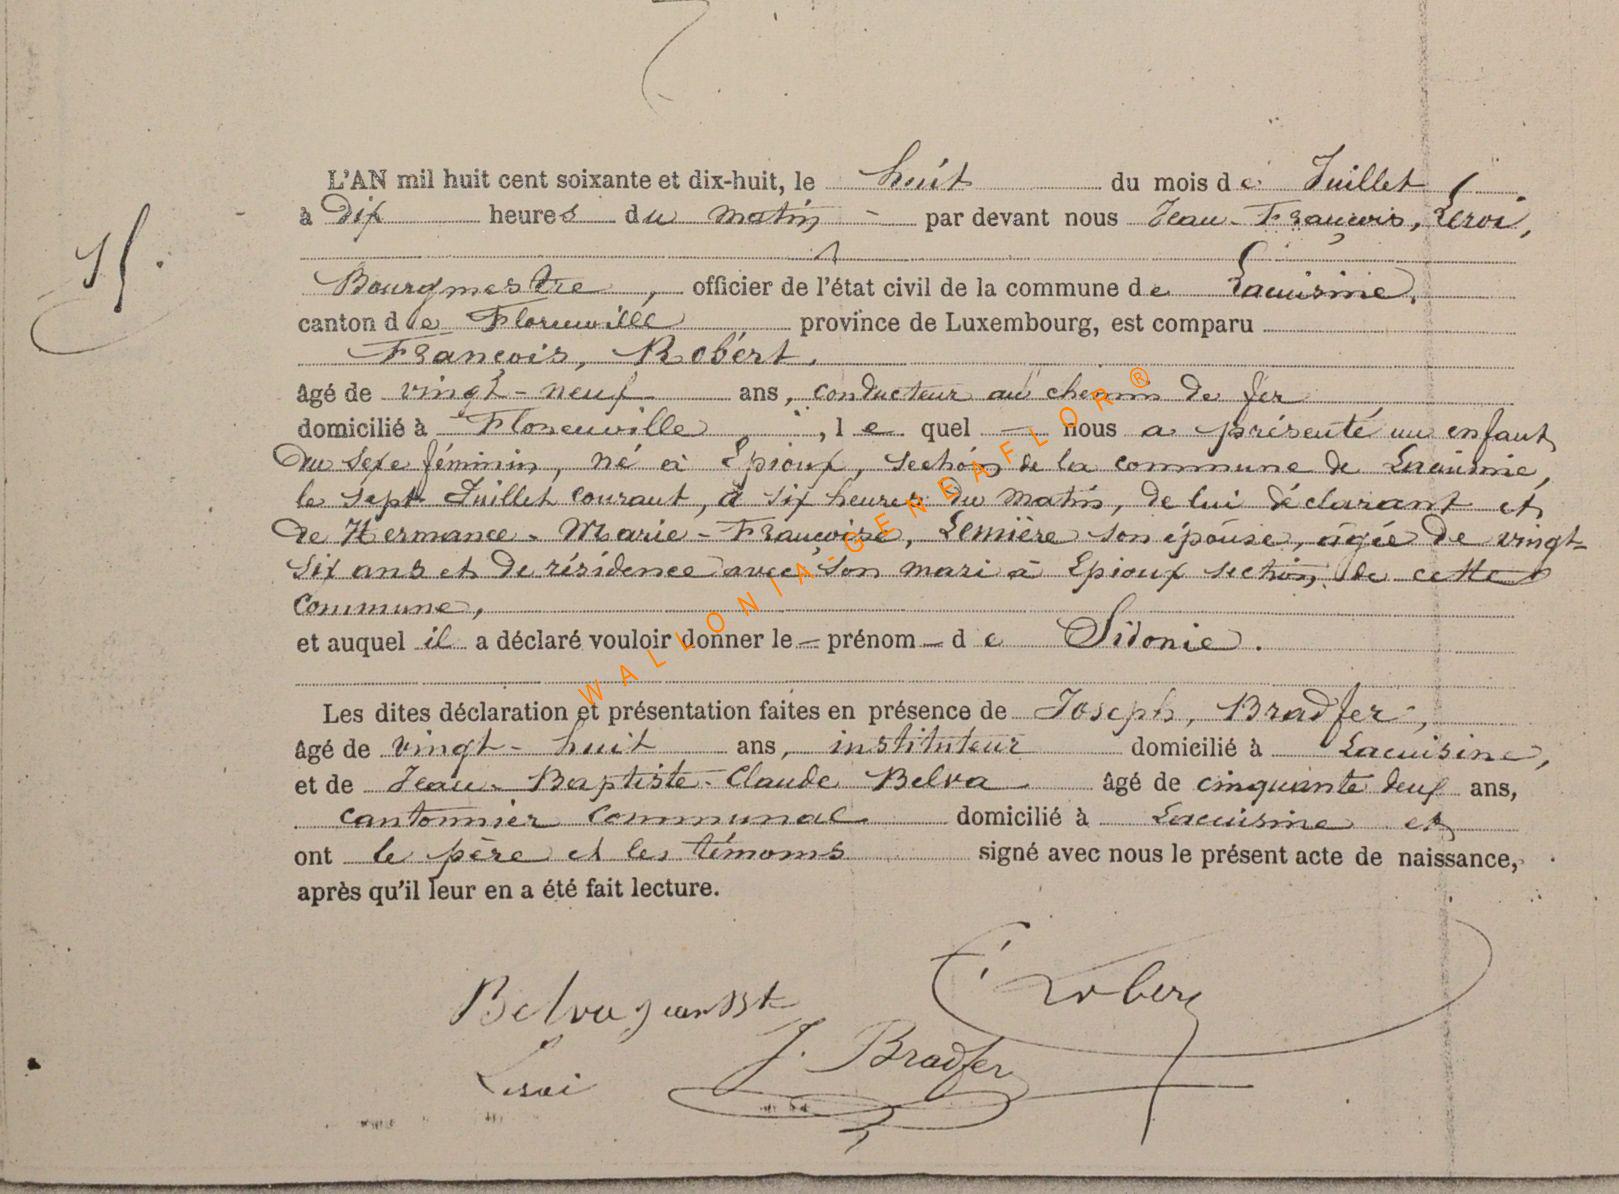 L'AN mil huit cent soixante et dix-huit, le huit du mois de Juillet
à dix heures du matin - par devant nous Jean-François, Leroi,
Bourgmestre, officier de l'état civil de la commune de Lacuisine,
canton de Florenville province de Luxembourg, est comparu
François, Robert,
âgé de vingt-neuf ans, conducteur au chemin de fer
domicilié à Florenville, lequel — nous a présenté un enfant
du sexe féminin, né à Epioux, section de la commune de Lacuisine,
le sept Juillet courant, à six heures du matin, de lui déclarant et
de Hermance-Marie-Françoise, Lemière son épouse, âgée de vingt-
six ans et de résidence avec son mari à Epioux section de cette
commune,
et auquel il a déclaré vouloir donner le – prénom – de Sidonie.
Les dites déclaration et présentation faites en présence de Joseph, Bradfer,
âgé de vingt-huit ans, instituteur domicilié à Lacuisine,
et de Jean-Baptiste-Claude Belva âgé de cinquante deux ans,
cantonnier communal domicilié à Lacuisine et
ont le père et les témoins signé avec nous le présent acte de naissance,
après qu'il leur en a été fait lecture.
WALLONIA-GENEAFLOR ®
Belva Jean Bte
Robert
J. Bradfer
Leroi